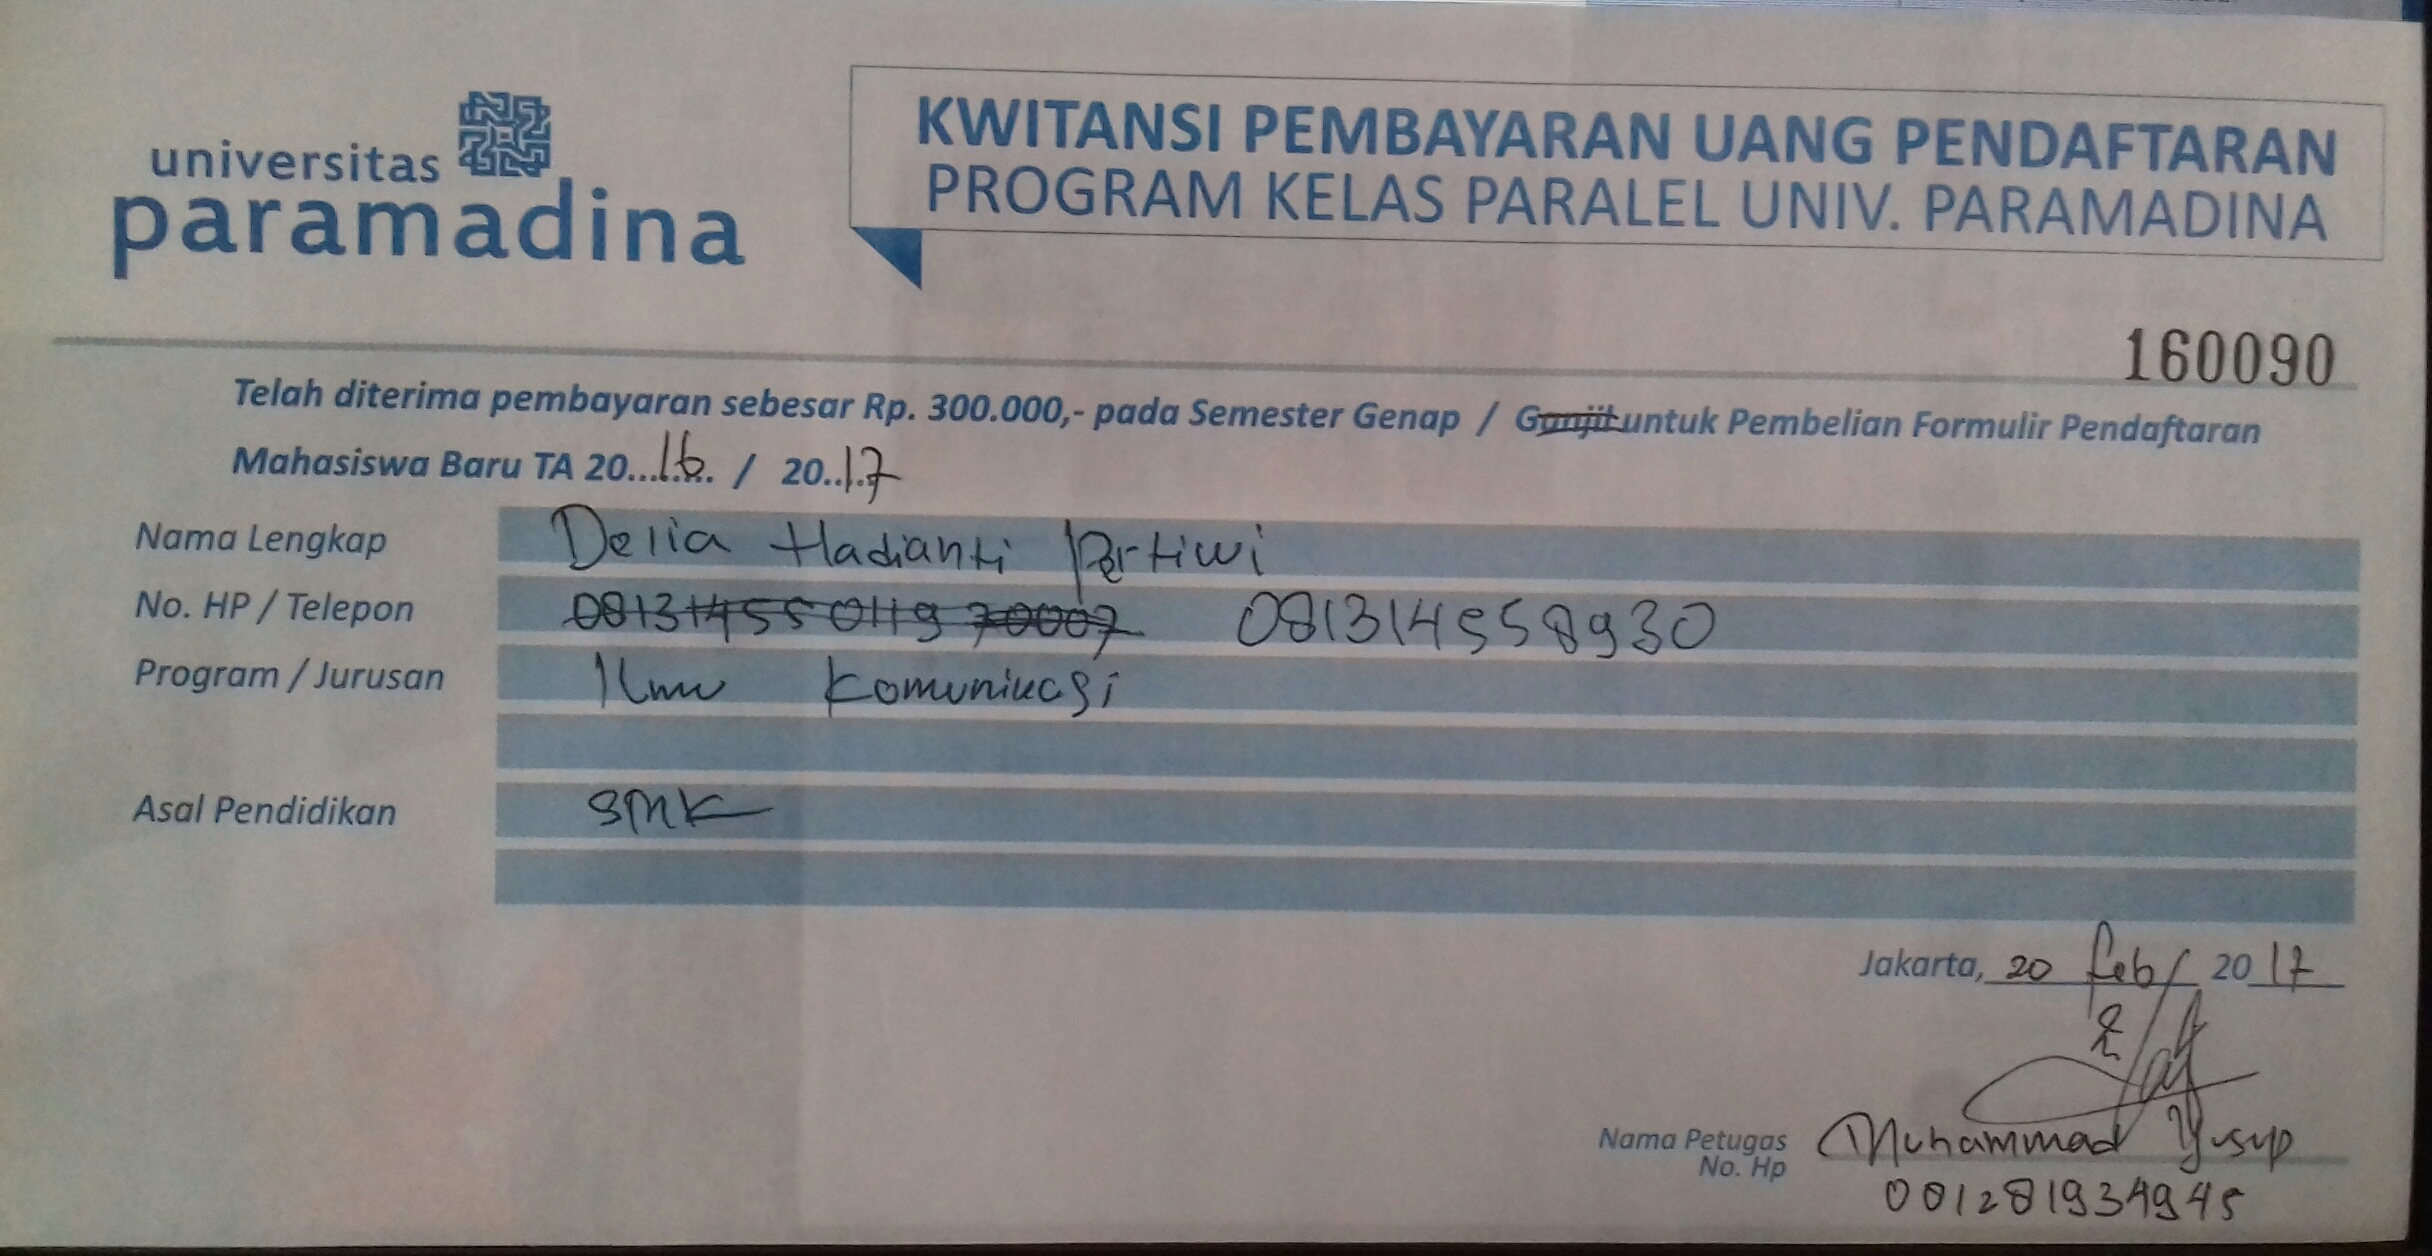 universitas
paramadina
KWITANSI PEMBAYARAN UANG PENDAFTARAN
PROGRAM KELAS PARALEL UNIV. PARAMADINA
160090
Telah diterima pembayaran sebesar Rp. 300.000,- pada Semester Genap / Ganjil untuk Pembelian Formulir Pendaftaran
Mahasiswa Baru TA 20...16.. / 20..17
Nama Lengkap Delia Hadianti Pertiwi
No. HP / Telepon 081314558930
Program / Jurusan Ilmu Komunikasi
Asal Pendidikan SMK
Jakarta, 20 feb / 20 17
Nama Petugas Muhammad Yusup
No. Hp
081281934945